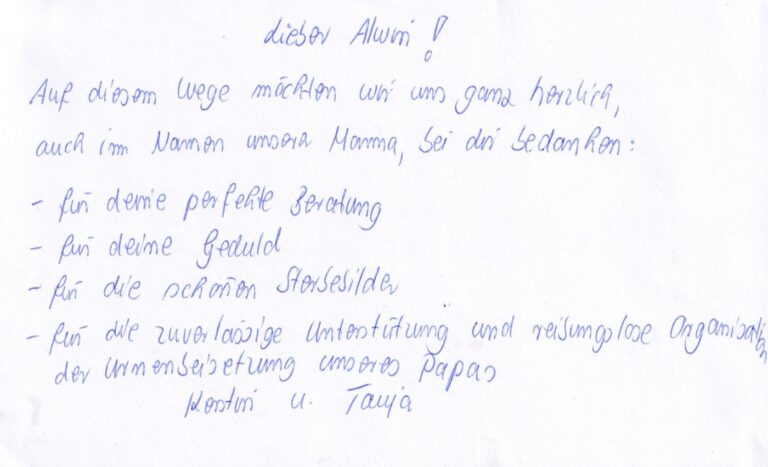 Lieber Alwin!
Auf diesem Wege möchten wir uns ganz herzlich,
auch im Namen unserer Mamma, bei dir bedanken:
- für deine perfekte Beratung
- für deine Geduld
- für die schönen Sterbebilder
- für die zuverlässige Unterstützung und reibungslose Organisation
der Urnenbeisetzung unseres Papas
Kerstin u. Tanja